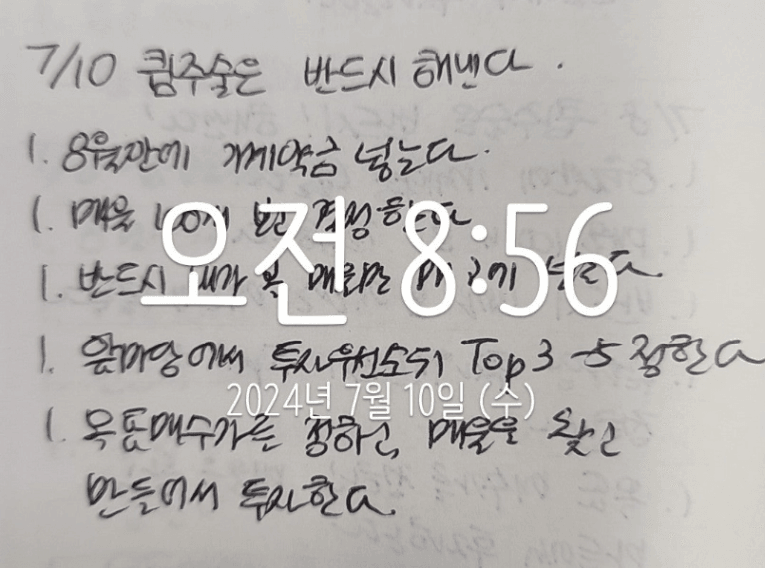 7/10 큄주술은 반드시 해낸다.
1. 8월안에 가계약금 넣는다.
1. 매물 100개 보고 결정한다
오전 8:56
1. 반드시 내가 본 매물만
1. 앞마당에서 투자우선순위 Top3 -5 정한다
2024년 7월 10일 (수)
1. 목표매수가를 정하고, 매물을 찾고
만들어서 투자한다.